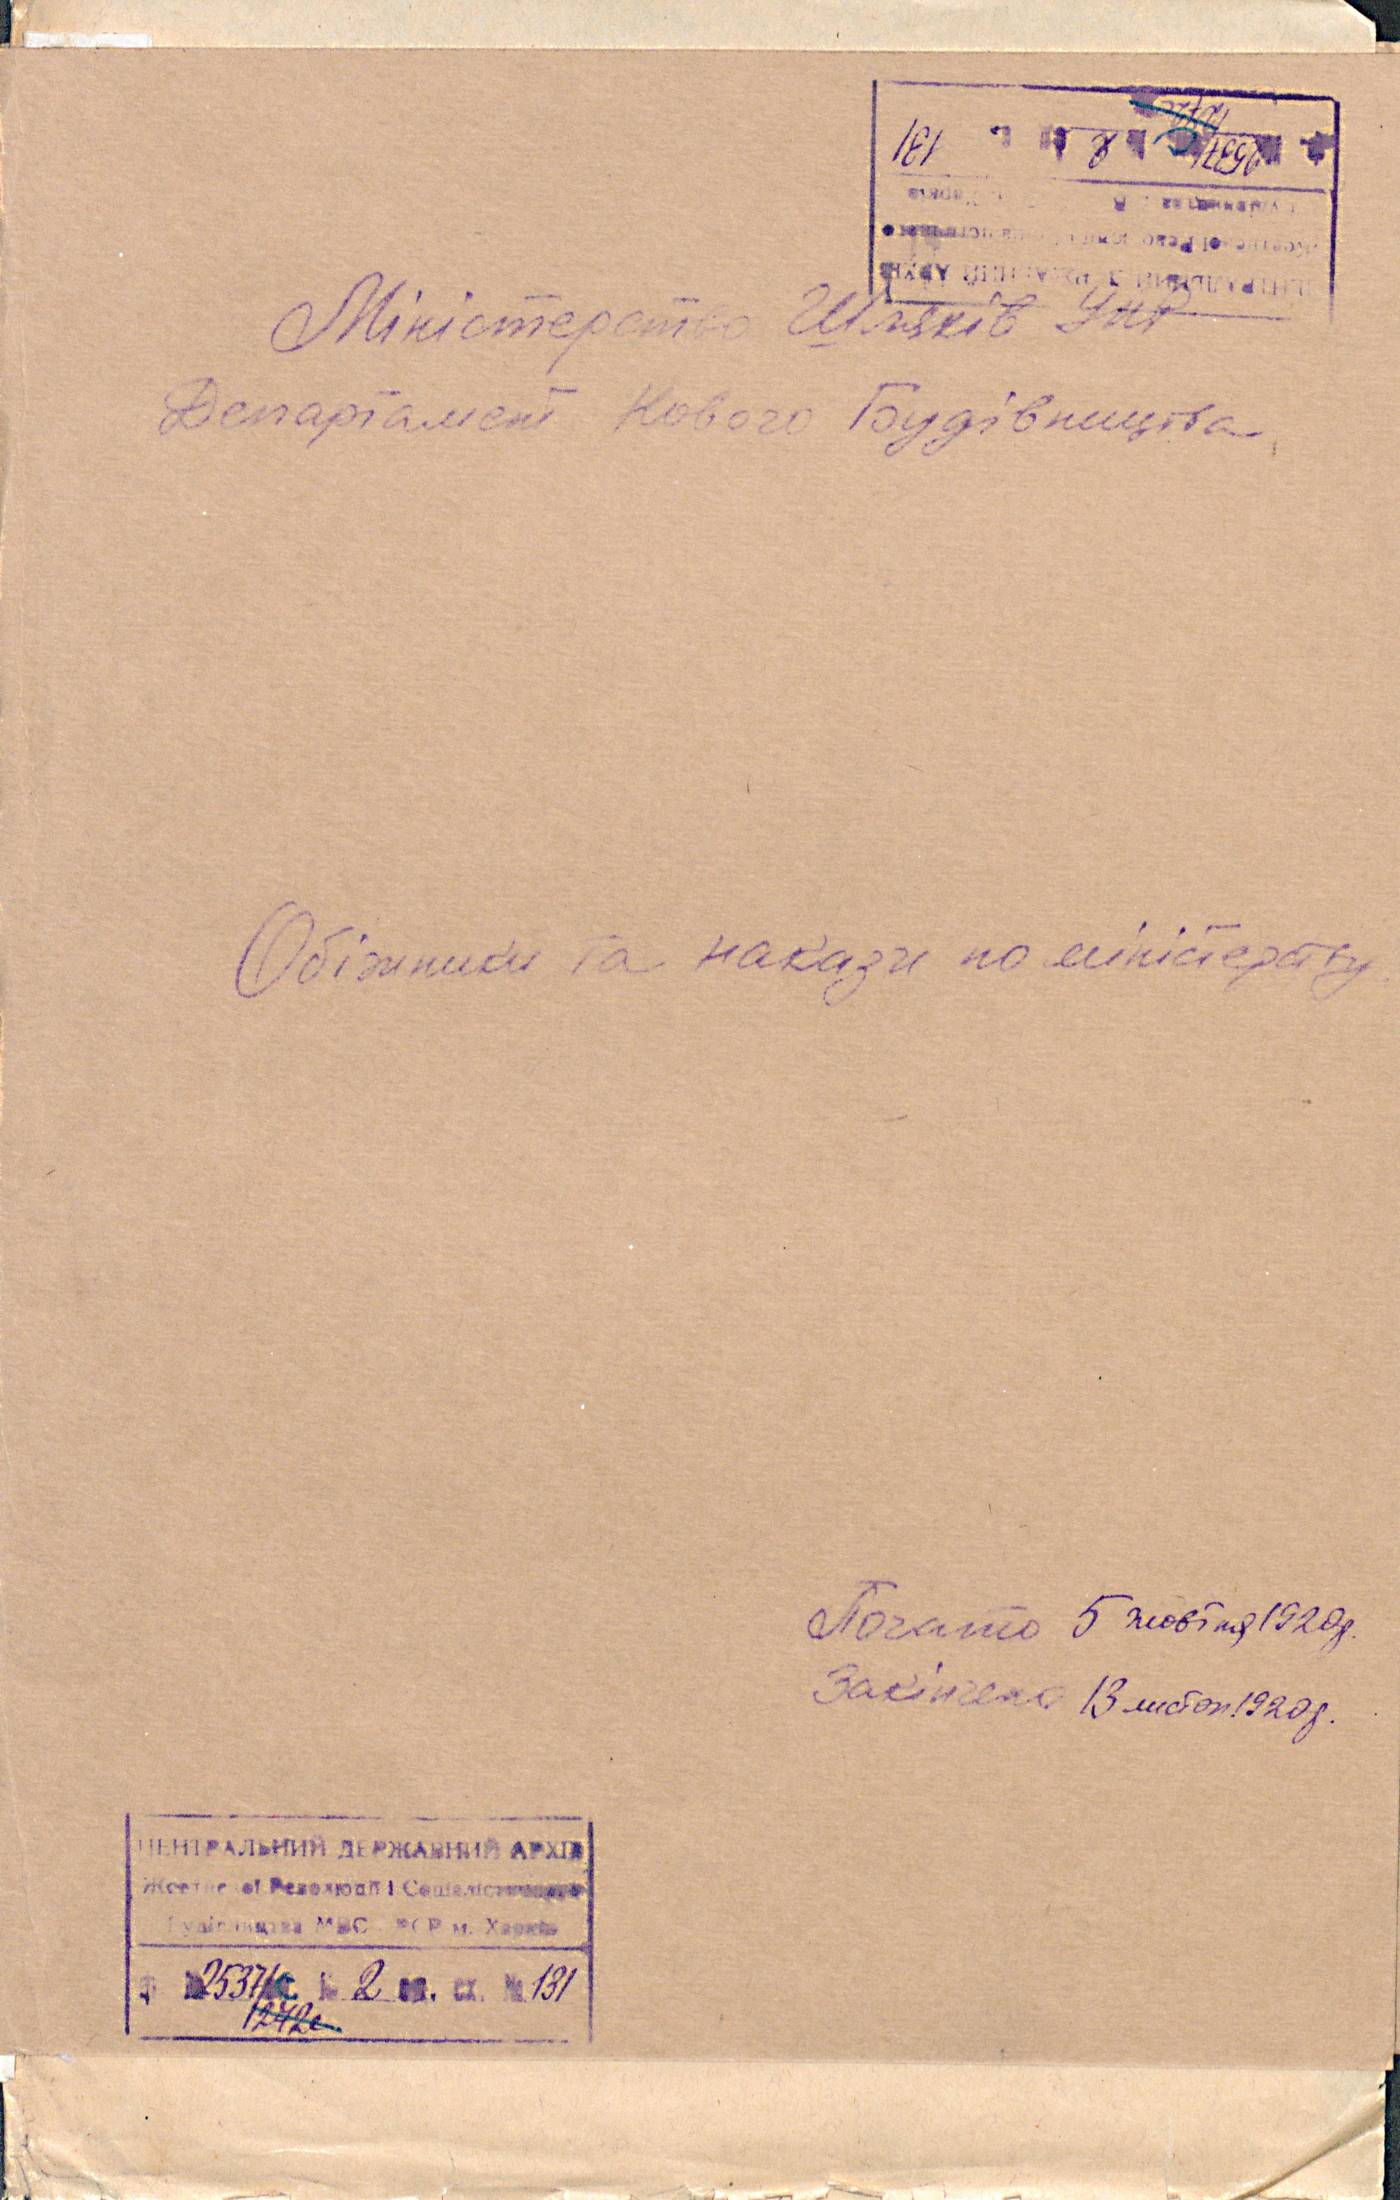 ЦЕНТРАЛЬНИЙ ДЕРЖАВНИЙ АРХІВ
2537 2 131
Міністерство Шляхів УНР
Департамент Нового Будівництва
Обіжники та накази по міністерству
Почато 5 жовтня 1920 р.
Закінчено 13 листоп. 1920 р.
ЦЕНТРАЛЬНИЙ ДЕРЖАВНИЙ АРХІВ
Жовтневої Революції і Соціалістичного
Будівництва МВС УРСР м. Харків
Ф № 2537/с № 2 оп. сх. № 131
1272с